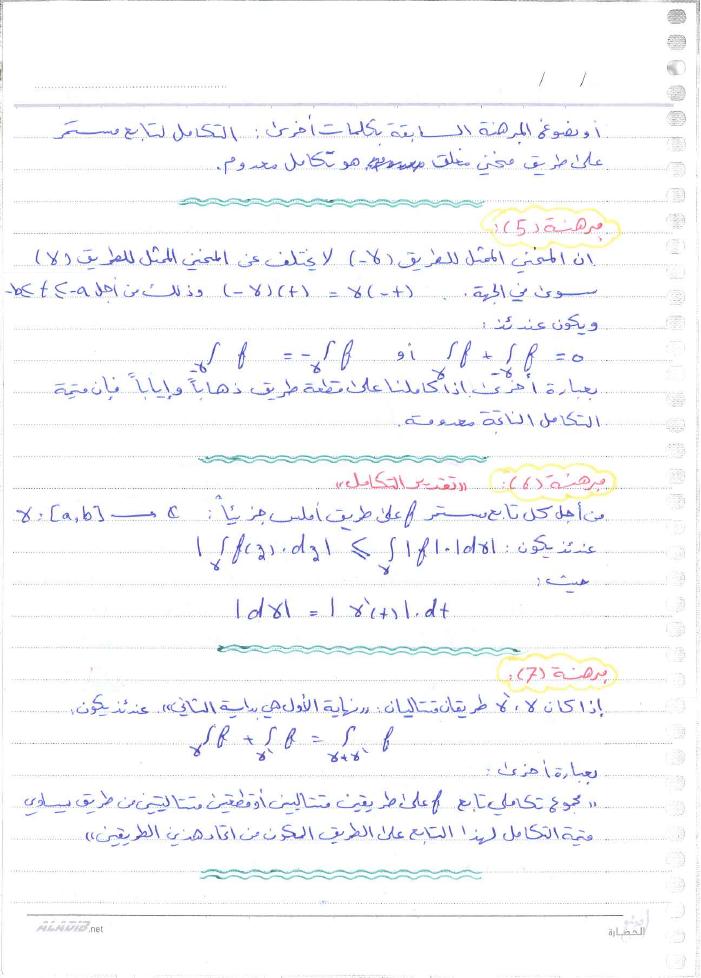 / /
أو بصوغ المبرهنة السابقة بكلمات أخرى : التكامل لتابع مستمر
على طريق منحني مغلق هو تكامل معدوم.
مبرهنة (5):
ان المنحني الممثل للطريق (-γ) لا يختلف عن المنحني الممثل للطريق (γ)
سوى في الجهة . (-γ)(t) = γ(-t) وذلك من أجل -b≤t≤-a
ويكون عندئذ :
∫_{-γ} f = -∫_γ f أو ∫_γ f + ∫_{-γ} f = 0
بعبارة أخرى : إذا كاملنا على قطعة طريق ذهاباً وإياباً فإن قيمة
التكامل الناتجة معدومة.
مبرهنة (6): «تقدير التكامل»
من أجل كل تابع مستمر f على طريق أملس جزئياً : γ : [a,b] → C
عندئذ يكون : |∫_γ f(z).dz| ≤ ∫_γ |f|.|dγ|
حيث :
|dγ| = |γ'(t)|.dt
مبرهنة (7):
إذا كان γ ، γ' طريقان متتاليان : «نهاية الأول هي بداية الثاني» عندئذ يكون:
∫_γ f + ∫_{γ'} f = ∫_{γ+γ'} f
بعبارة أخرى :
«مجموع تكاملي تابع f على طريقين متتاليين أو قطعتين متتاليتين من طريق يساوي
قيمة التكامل لهذا التابع على الطريق المكون من اتحاد هذين الطريقين»
ALADIB.net
الحضارة